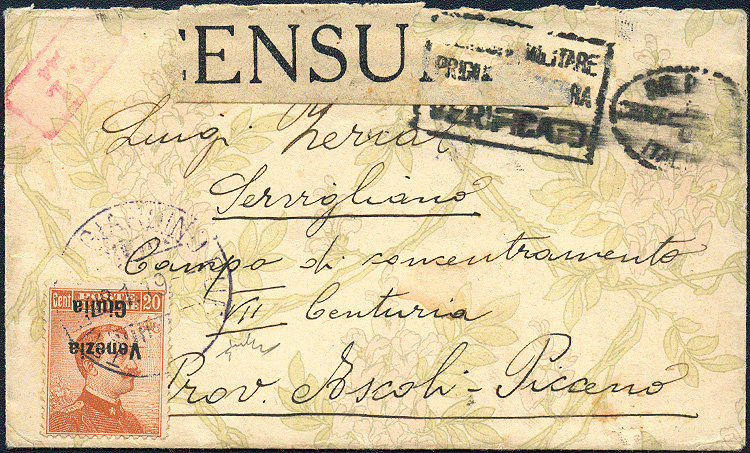 ENSU
MILITARE
PRIGI
VERIFICATO
Luigi
Servigliano
Campo di concentramento
VII Centuria
Prov. Ascoli-Piceno
Cent. POSTE 20
Venezia
Giulia